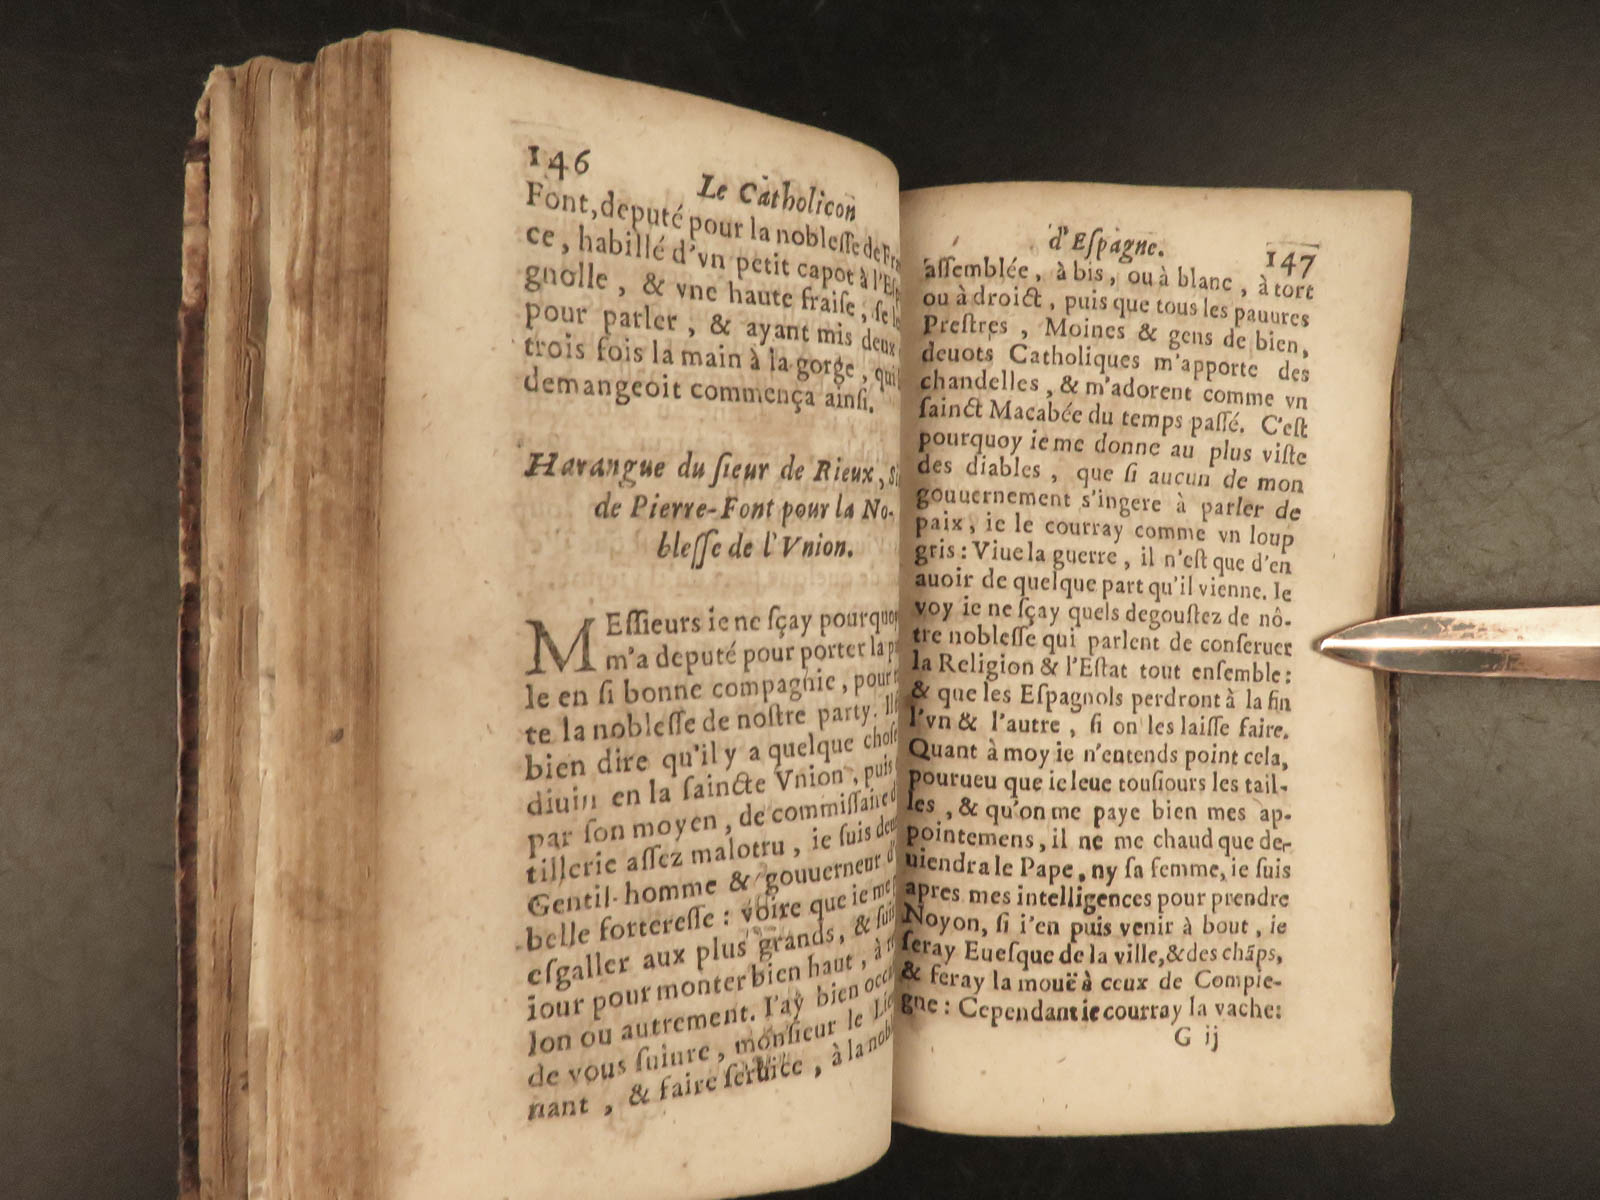 146
Le Catholicon
Font, deputé pour la noblesse de Fra
ce, habillé d'vn petit capot à l'Esp
gnolle, & vne haute fraise, se le
pour parler, & ayant mis deux
trois fois la main à la gorge, qui
demangeoit commença ainsi.
Harangue du sieur de Rieux, Si
de Pierre-Font pour la No-
blesse de l'Vnion.
MEssieurs ie ne sçay pourquoy
m'a deputé pour porter la p
le en si bonne compagnie, pour
te la noblesse de nostre party. Il
bien dire qu'il y a quelque chose
diuin en la saincte Vnion, puis
par son moyen, de commissaire d
tillerie assez malotru, ie suis deu
Gentil-homme & gouuerneur d'
belle forteresse: voire que ie me
esgaller aux plus grands, & suis
iour pour monter bien haut, à
lon ou autrement. I'ay bien occa
de vous suiure, monsieur le Lie
nant, & faire seruice, à la nob
d'Espagne.
147
assemblée, à bis, ou à blanc, à tort
ou à droict, puis que tous les pauures
Prestres, Moines & gens de bien,
deuots Catholiques m'apporte des
chandelles, & m'adorent comme vn
sainct Macabée du temps passé. C'est
pourquoy ie me donne au plus viste
des diables, que si aucun de mon
gouuernement s'ingere à parler de
paix, ie le courray comme vn loup
gris: Viue la guerre, il n'est que d'en
auoir de quelque part qu'il vienne. Ie
voy ie ne sçay quels degoustez de nô-
tre noblesse qui parlent de conseruer
la Religion & l'Estat tout ensemble:
& que les Espagnols perdront à la fin
l'vn & l'autre, si on les laisse faire.
Quant à moy ie n'entends point cela,
pourueu que ie leue tousiours les tail-
les, & qu'on me paye bien mes ap-
pointemens, il ne me chaud que de-
uiendra le Pape, ny sa femme, ie suis
apres mes intelligences pour prendre
Noyon, si i'en puis venir à bout, ie
seray Euesque de la ville, & des chãps,
& feray la mouë à ceux de Compie-
gne: Cependant ie courray la vache:
G ij